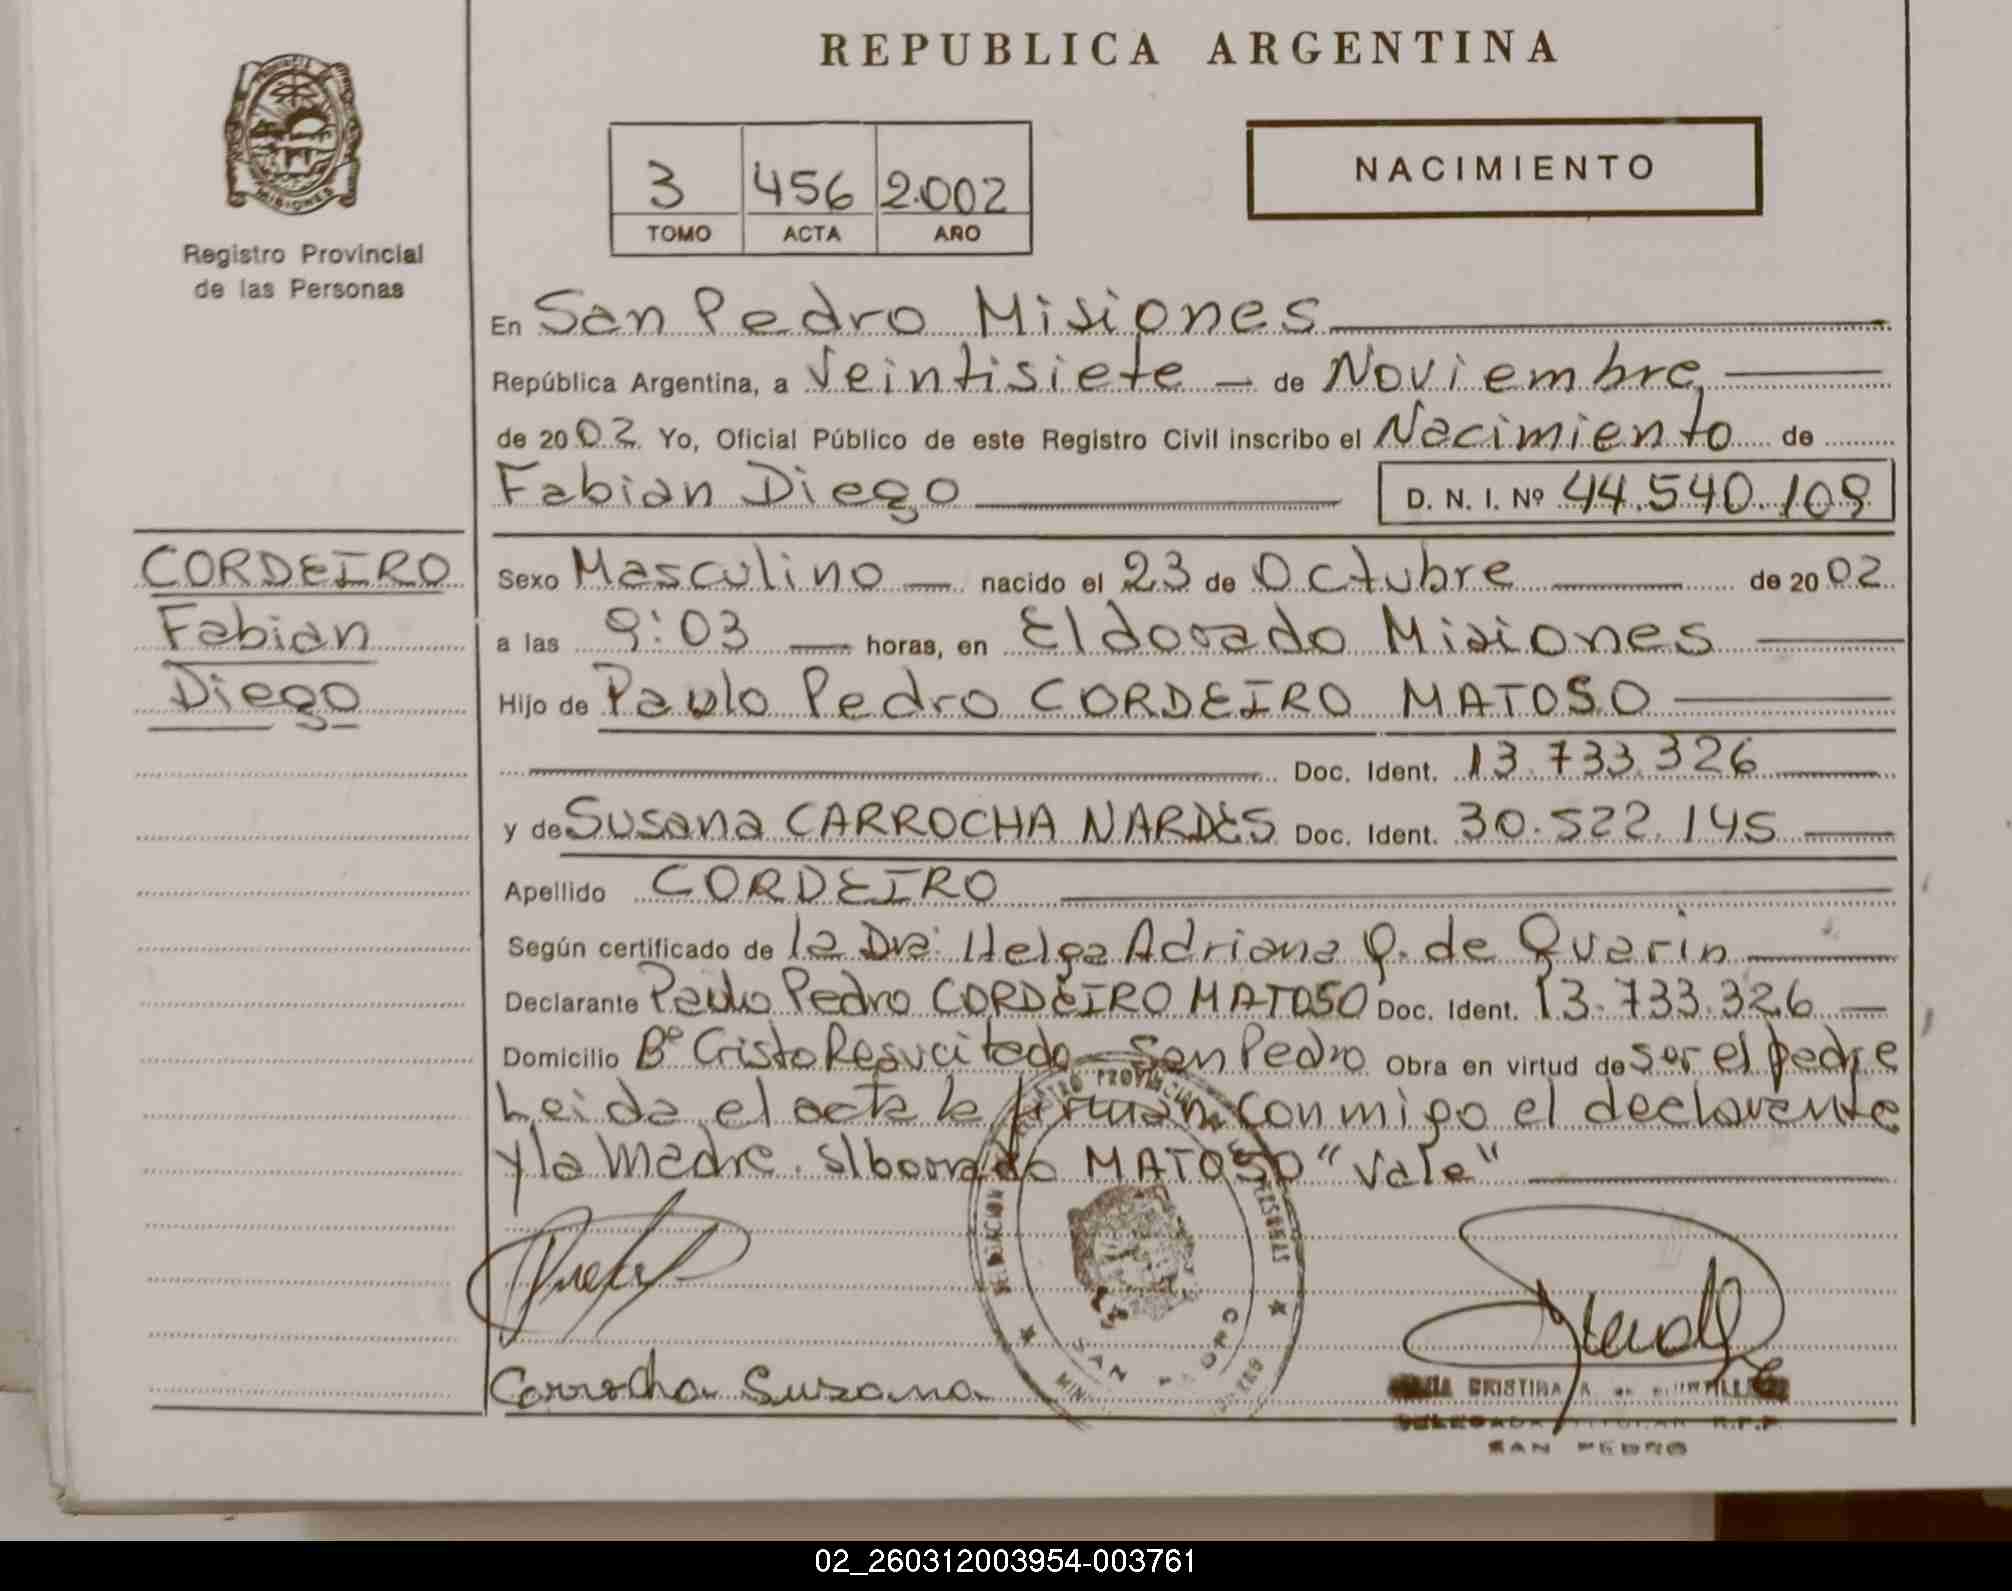 REPUBLICA ARGENTINA
NACIMIENTO
3 456 2.002
TOMO ACTA AÑO
Registro Provincial
de las Personas
En San Pedro Misiones
República Argentina, a Veintisiete de Noviembre
de 2002 Yo, Oficial Público de este Registro Civil inscribo el Nacimiento de
Fabian Diego D. N. I. Nº 44.540.109
CORDEIRO
Fabian
Diego
Sexo Masculino nacido el 23 de Octubre de 2002
a las 9:03 horas, en Eldorado Misiones
Hijo de Paulo Pedro CORDEIRO MATOSO
Doc. Ident. 13.733.326
y de Susana CARROCHA NARDES Doc. Ident. 30.522.145
Apellido CORDEIRO
Según certificado de la Dra: Helga Adriana Q. de Quarin
Declarante Paulo Pedro CORDEIRO MATOSO Doc. Ident. 13.733.326
Domicilio Bº Cristo Resucitado San Pedro Obra en virtud de ser el padre
Leida el acta la firman conmigo el declarante
y la Madre. s/borrado MATOSO "Vale"
Carrocha Susana
SAN PEDRO
CRISTINA
SAN PEDRO
02_260312003954-003761